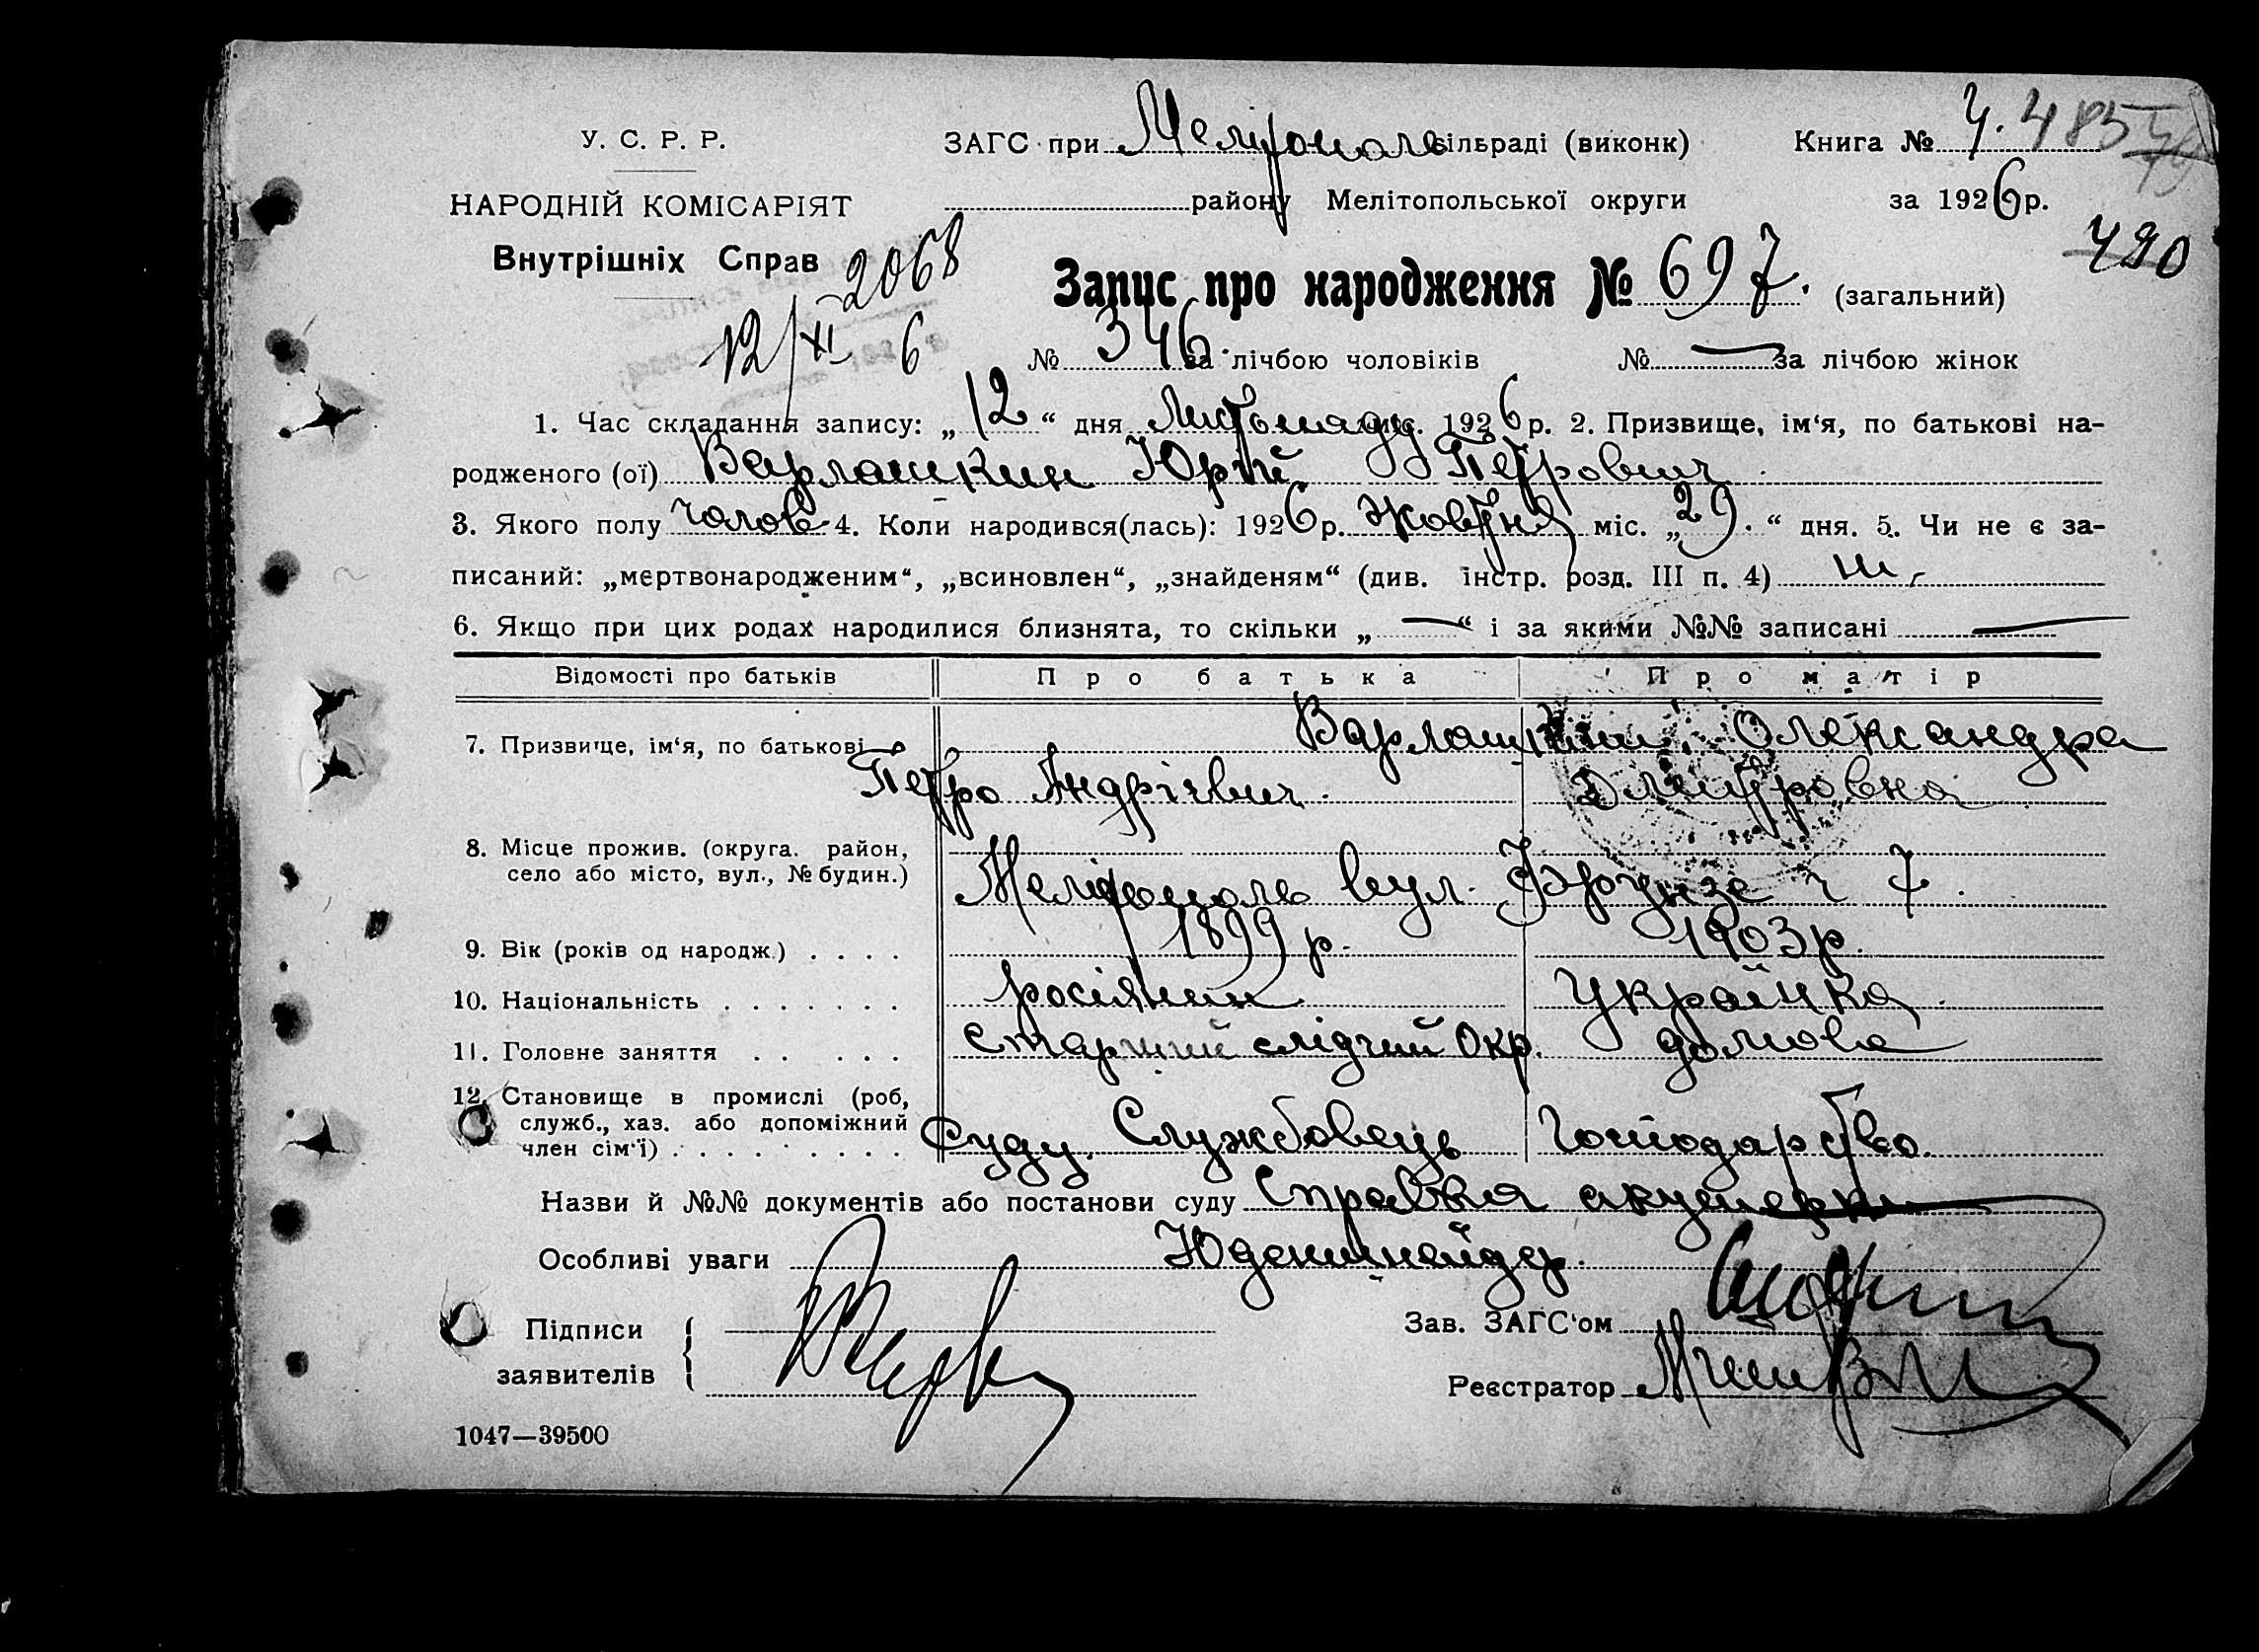 У. С. Р. Р. ЗАГС при Мелітополь сільраді (виконк) Книга № 4. 485
НАРОДНІЙ КОМІСАРІЯТ району Мелітопольської округи за 1926 р.
Внутрішніх Справ 2068 490
Запис про народження № 697. (загальний)
12/XI 6 № 346. за лічбою чоловіків № — за лічбою жінок
1. Час складання запису: „12“ дня Листопаду міс. 1926 р. 2. Призвище, ім‘я, по батькові на-
родженого (ої) Варлашкин Юрій Петрович
3. Якого полу чолов 4. Коли народився(лась): 1926 р. Жовтня міс. „29.“ дня. 5. Чи не є за-
писаний: „мертвонародженим“, „всиновлен“, „знайденям“ (див. інстр. розд. III п. 4) ні
6. Якщо при цих родах народилися близнята, то скільки „—“ і за якими №№ записані —
Відомості про батьків Про батька Про матір
7. Призвище, ім‘я, по батькові Варлашкини Олександра
Петро Андрієвич. Дмитровна
8. Місце прожив. (округа. район,
село або місто, вул., № будин.) Мелітополь вул. Фрунзе ч 7.
9. Вік (років од народж.) . . . . 1899 р. 1903 р.
10. Національність . . . . . . . росіянин українка
11. Головне заняття . . . . . Старший слідчий Окр. домове
12. Становище в промислі (роб,
служб., хаз. або допоміжний Суду. Службовець господарство.
член сім‘ї) . . . . . . . . .
Назви й №№ документів або постанови суду Справка акушерки
Особливі уваги Юденшнайдер.
Підписи Зав. ЗАГС‘ом
заявителів Реєстратор
1047—39500